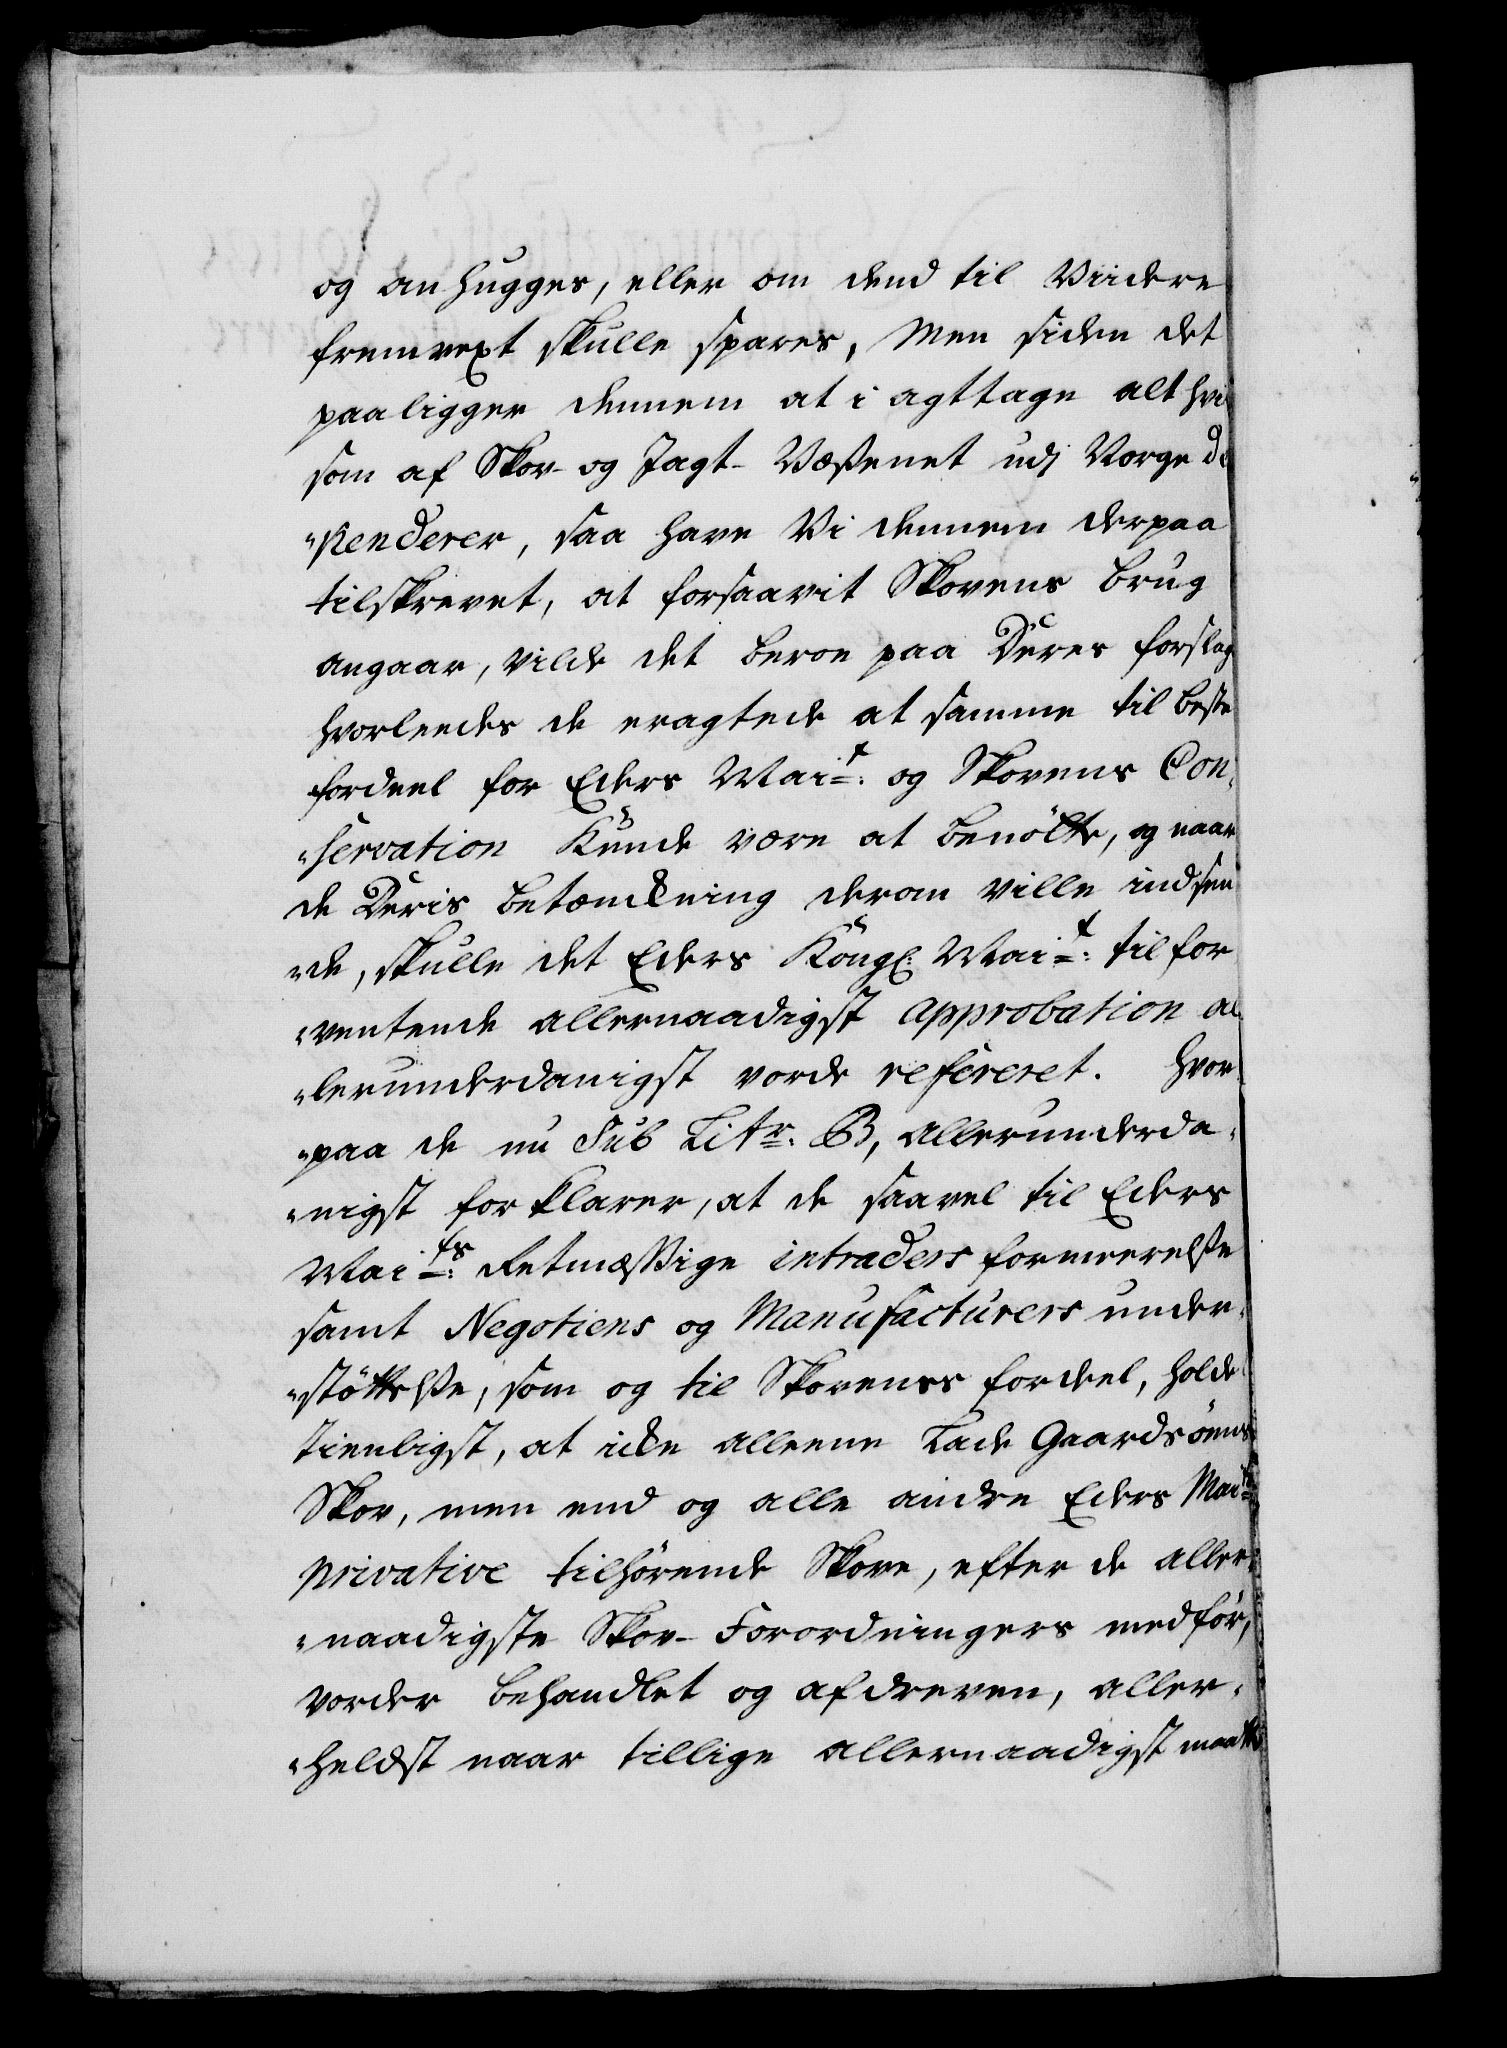 og anhugges, eller om dend til Viidere
fremvext skulle spares, Men siden det
paaligger dennem at i agttage alt hvi
som af Skov- og Jagt-Væßenet udj Norge de
"penderer, saa have Vi dennem derpaa
tilskrevet, at forsaavit Skovens brug
angaar, vilde det beroe paa Deres forslag
hvorleedes de eragtede at samme til beste
fordeel for Eders Mai:t og Skovens Con„
„servation Kunde være at benötte, og naar
de Deris betænckning derom ville indsen
„de, skulle det Eders Kongl: Mai:t til for
„ventende allernaadigst approbation al
„lerunderdanigst vorde refereret. Hvor
„paa de nu Sub Litr. B, allerunderda„
„nigst forklarer, at de saavel til Eders
Mai:ts Retmæssige intraders formeerelße
samt Negotiens og Manufacturers under„
„stöttelße, som og til Skovenes fordeel, holde
tienligst, at icke alleene Lade Gaardsöens
Skov, men end og alle andre Eders Mai:ts
privative tilhörende Skove, efter de aller„
„naadigste Skov-Forordningers medför,
vorder behandlet og afdreven, aller„
„heldst naar tillige allernaadigst maatte